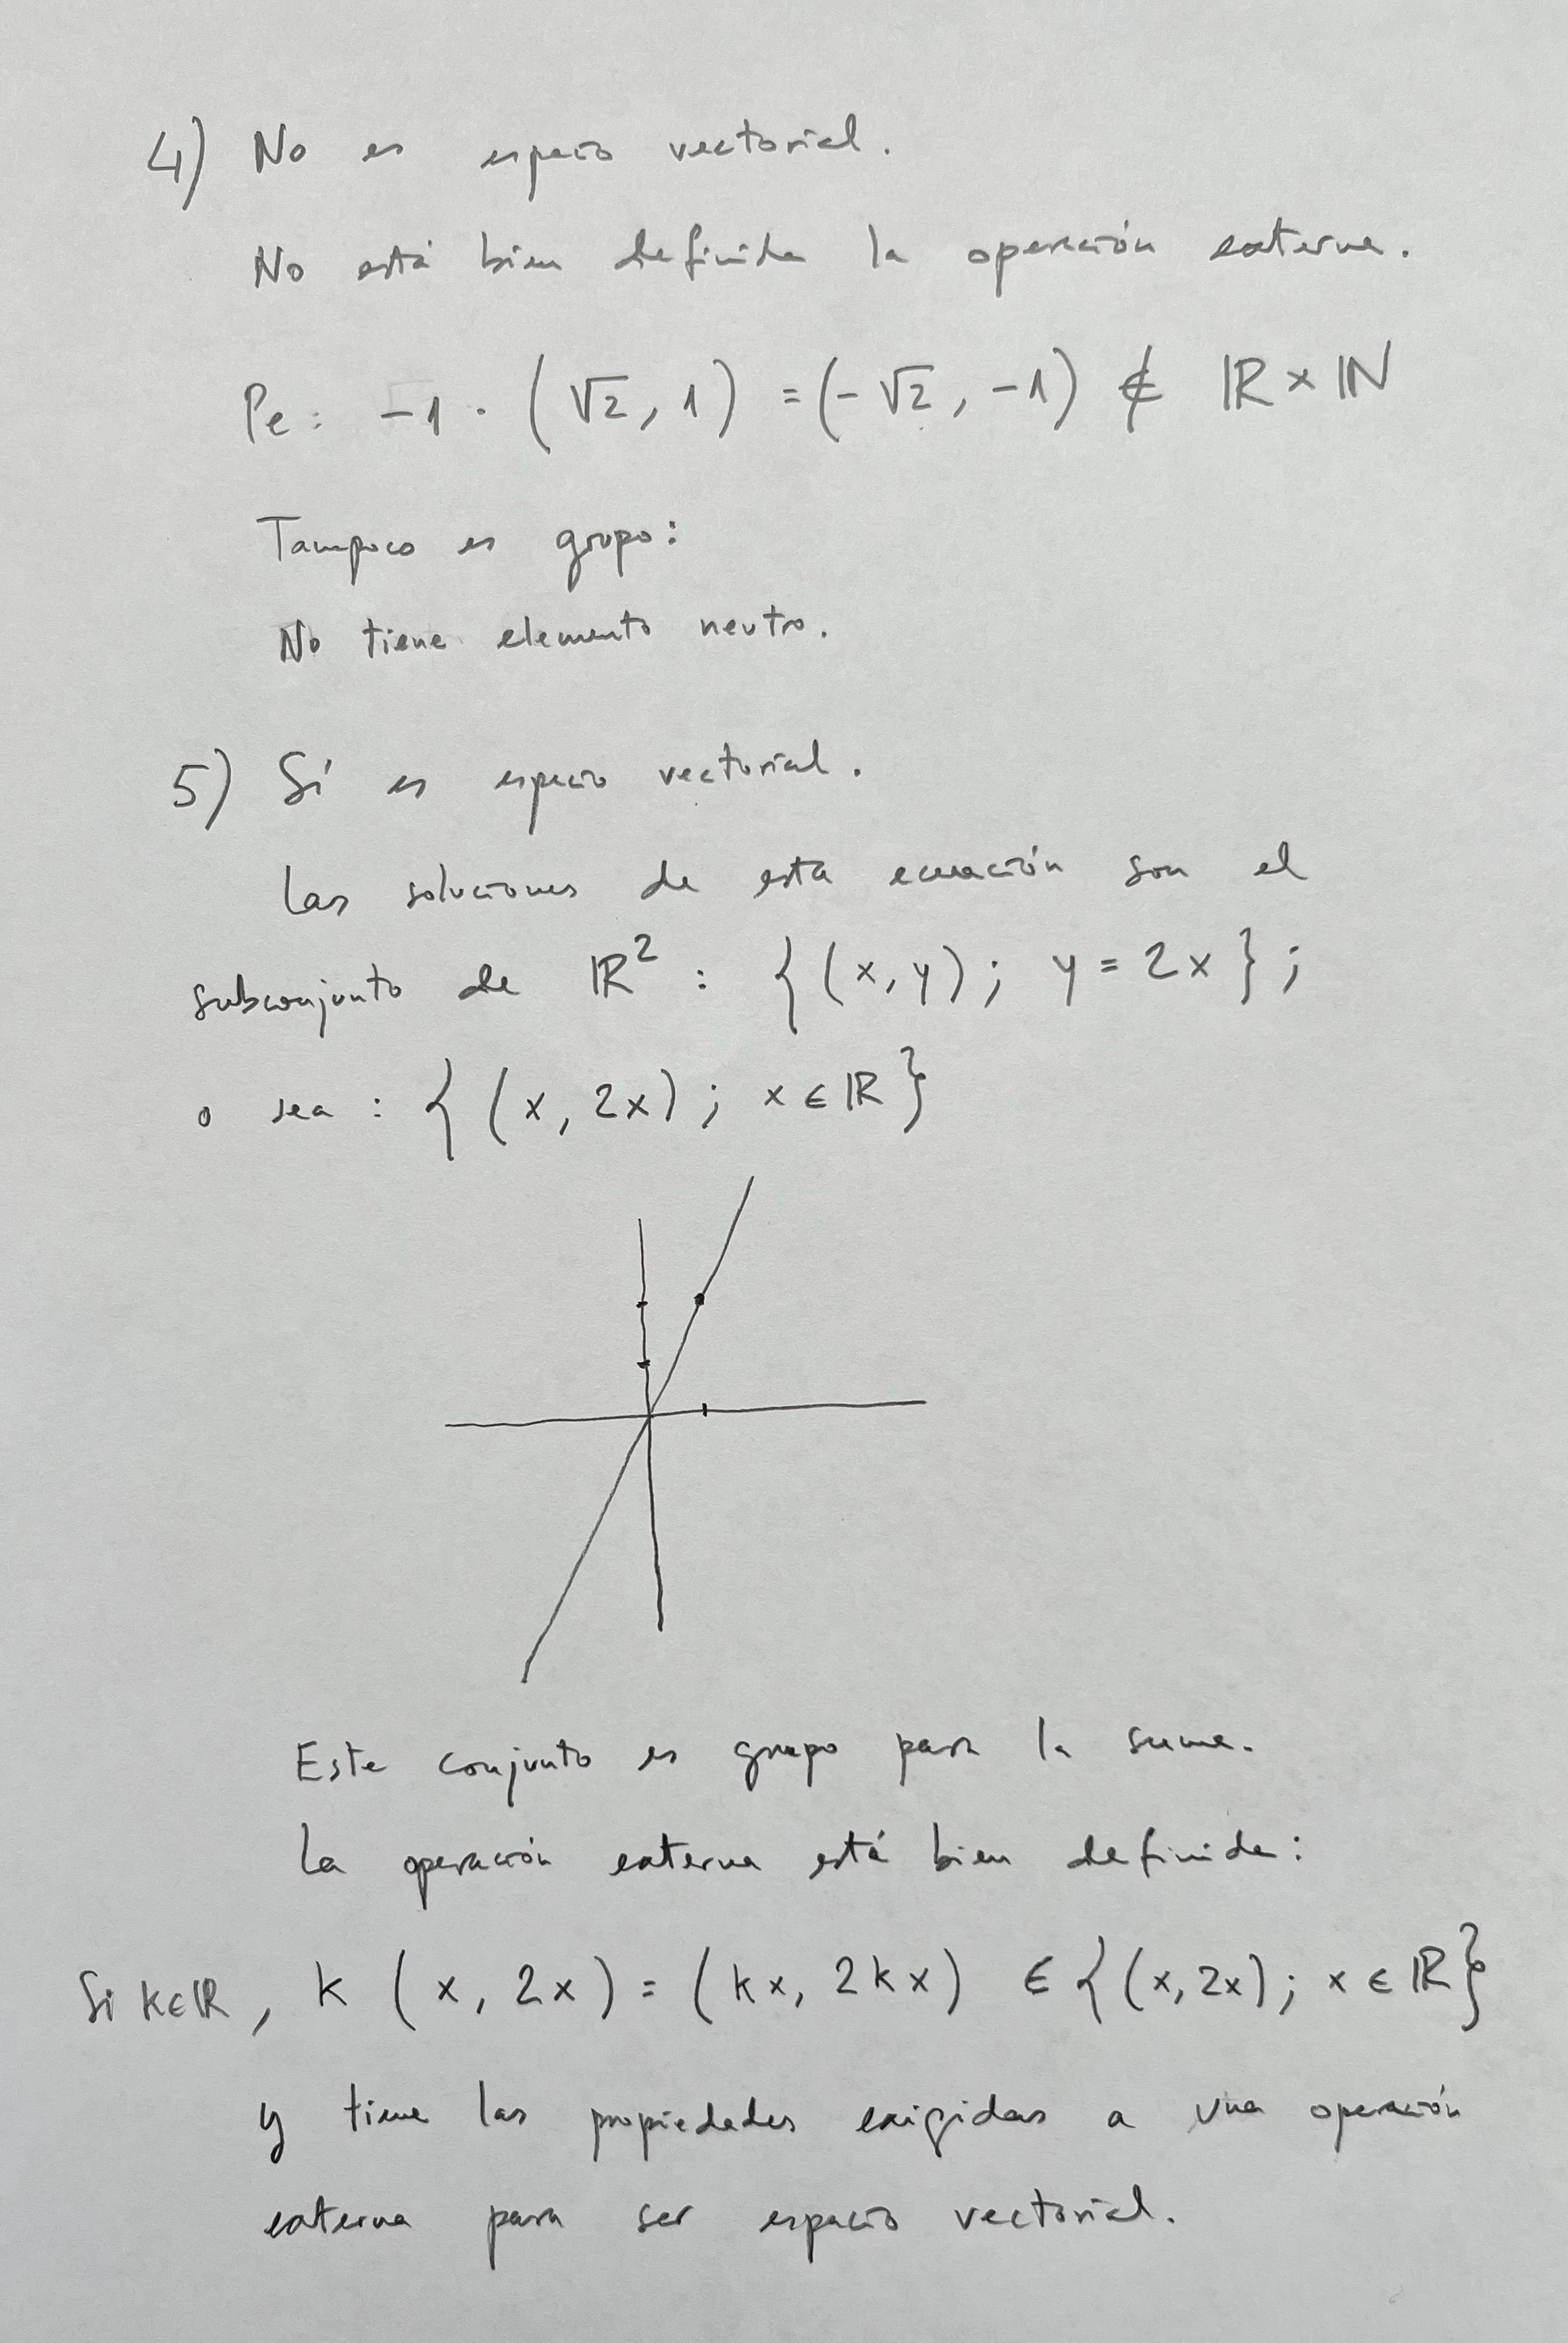 4) No es espacio vectorial.
No está bien definida la operación externa.
Pe: -1 · (√2, 1) = (-√2, -1) ∉ ℝ × ℕ
Tampoco es grupo:
No tiene elemento neutro.
5) Sí es espacio vectorial.
Las soluciones de esta ecuación son el
subconjunto de ℝ² : {(x, y); y = 2x};
o sea : {(x, 2x); x ∈ ℝ}
Este conjunto es grupo para la suma.
La operación externa está bien definida:
Si k∈ℝ, k (x, 2x) = (kx, 2kx) ∈ {(x, 2x); x ∈ ℝ}
y tiene las propiedades exigidas a una operación
externa para ser espacio vectorial.